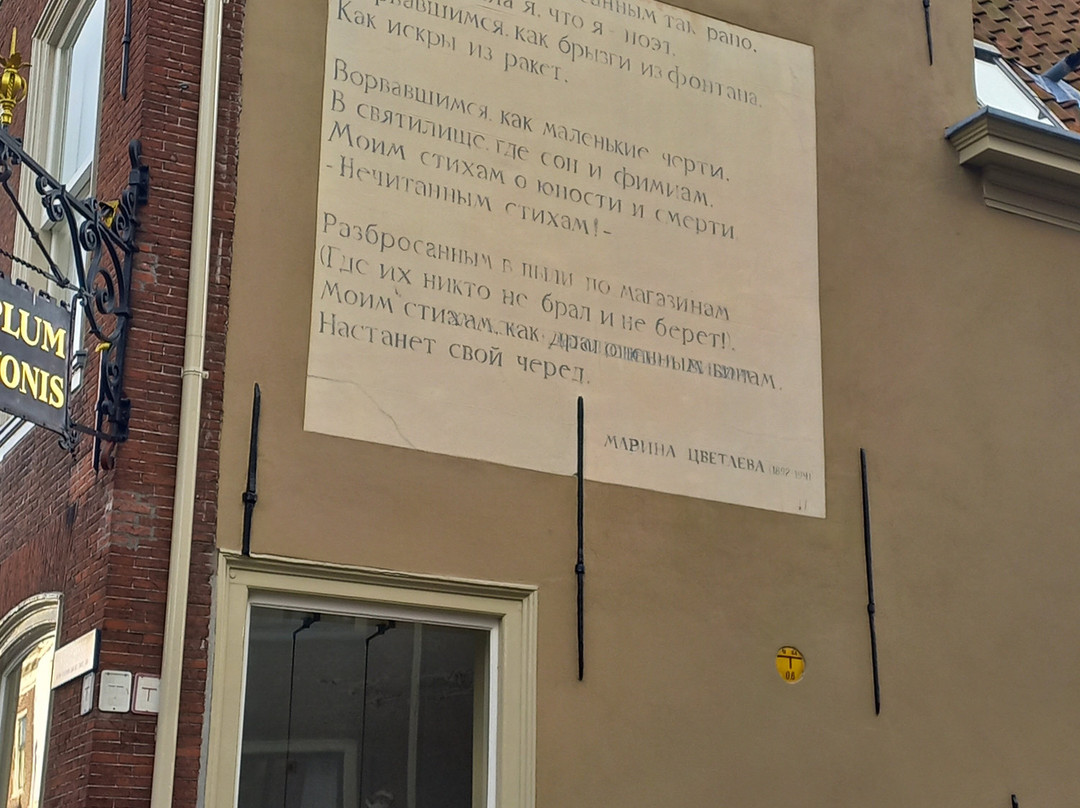 санным так рано,
ла я, что я - поэт,
рвавшимся, как брызги из фонтана,
Как искры из ракет.
Ворвавшимся, как маленькие черти,
В святилище, где сон и фимиам,
Моим стихам о юности и смерти
- Нечитанным стихам! -
Разбросанным в пыли по магазинам
(Где их никто не брал и не берет!),
Моим стихам, как драгоценным винам,
Настанет свой черед.
МАРИНА ЦВЕТАЕВА (1892-1941)
PLUM
ONIS
T
T
T